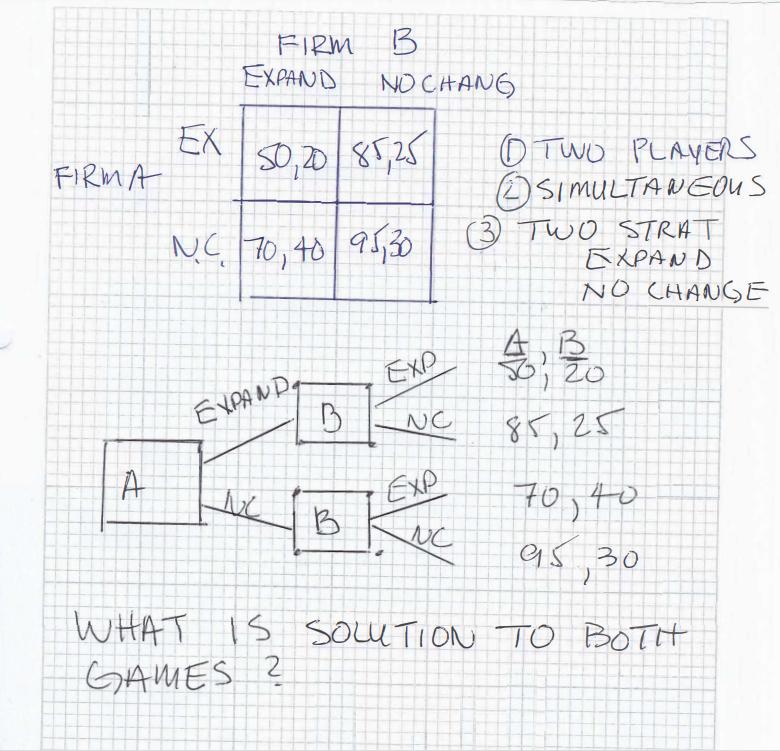 FIRM B
EXPAND NO CHANG
EX 50,20 85,25
FIRM A
N.C. 70,40 95,30
① TWO PLAYERS
② SIMULTANEOUS
③ TWO STRAT
EXPAND
NO CHANGE
A, B
EXPAND B EXP 50, 20
NC 85, 25
A
NC B EXP 70, 40
NC 95, 30
WHAT IS SOLUTION TO BOTH
GAMES?